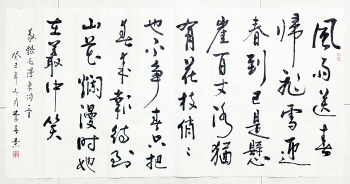 風雨送春
歸飛雪迎
春到已是懸
崖百丈冰猶
有花枝俏〻
也不争春只把
春来報待到
山花爛漫时她
在叢中笑
錄毛澤東詞
癸巳年九月